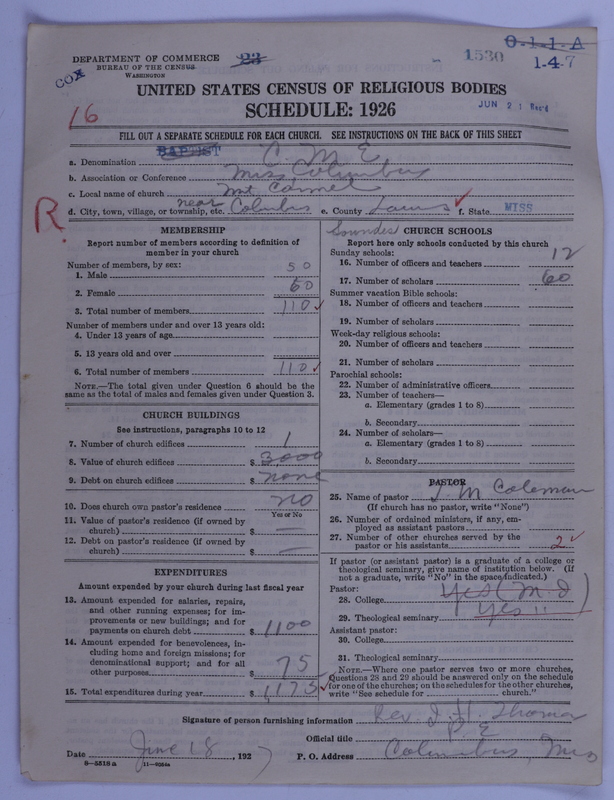 DEPARTMENT OF COMMERCE
BUREAU OF THE CENSUS
WASHINGTON
COX
23
1530
0-1-1-A
1-4-7
UNITED STATES CENSUS OF RELIGIOUS BODIES
SCHEDULE: 1926
JUN 21 Rec'd
16
FILL OUT A SEPARATE SCHEDULE FOR EACH CHURCH. SEE INSTRUCTIONS ON THE BACK OF THIS SHEET
BAPTIST
a. Denomination C M E
b. Association or Conference Miss Columbus
c. Local name of church Mt Carmel
d. City, town, village, or township, etc. near Columbus e. County f. State MISS
R.
MEMBERSHIP
Report number of members according to definition of member in your church
Number of members, by sex:
1. Male 50
2. Female 60
3. Total number of members 110
Number of members under and over 13 years old:
4. Under 13 years of age
5. 13 years old and over
6. Total number of members 110
NOTE.—The total given under Question 6 should be the same as the total of males and females given under Question 3.
CHURCH BUILDINGS
See instructions, paragraphs 10 to 12
7. Number of church edifices 1
8. Value of church edifices $ 3000
9. Debt on church edifices $ none
10. Does church own pastor's residence no
Yes or No
11. Value of pastor's residence (if owned by church) $
12. Debt on pastor's residence (if owned by church) $ —
EXPENDITURES
Amount expended by your church during last fiscal year
13. Amount expended for salaries, repairs, and other running expenses; for improvements or new buildings; and for payments on church debt $ 1100
14. Amount expended for benevolences, including home and foreign missions; for denominational support; and for all other purposes $ 75
15. Total expenditures during year $ 1,175
CHURCH SCHOOLS
Report here only schools conducted by this church
Sunday schools:
16. Number of officers and teachers 12
17. Number of scholars 60
Summer vacation Bible schools:
18. Number of officers and teachers
19. Number of scholars
Week-day religious schools:
20. Number of officers and teachers
21. Number of scholars
Parochial schools:
22. Number of administrative officers
23. Number of teachers—
a. Elementary (grades 1 to 8)
b. Secondary
24. Number of scholars—
a. Elementary (grades 1 to 8)
b. Secondary
PASTOR
25. Name of pastor J M Coleman
(If church has no pastor, write "None")
26. Number of ordained ministers, if any, employed as assistant pastors
27. Number of other churches served by the pastor or his assistants 2
If pastor (or assistant pastor) is a graduate of a college or theological seminary, give name of institution below. (If not a graduate, write "No" in the space indicated.)
Pastor:
28. College Yes (M I)
29. Theological seminary Yes "
Assistant pastor:
30. College
31. Theological seminary
NOTE.—Where one pastor serves two or more churches, Questions 28 and 29 should be answered only on the schedule for one of the churches; on the schedules for the other churches, write "See schedule for ______ church."
Signature of person furnishing information Rev. J. H. Thomas
Official title P E
Date June 18, 1927 P. O. Address Columbus, Miss
8-5518a 11-9244a